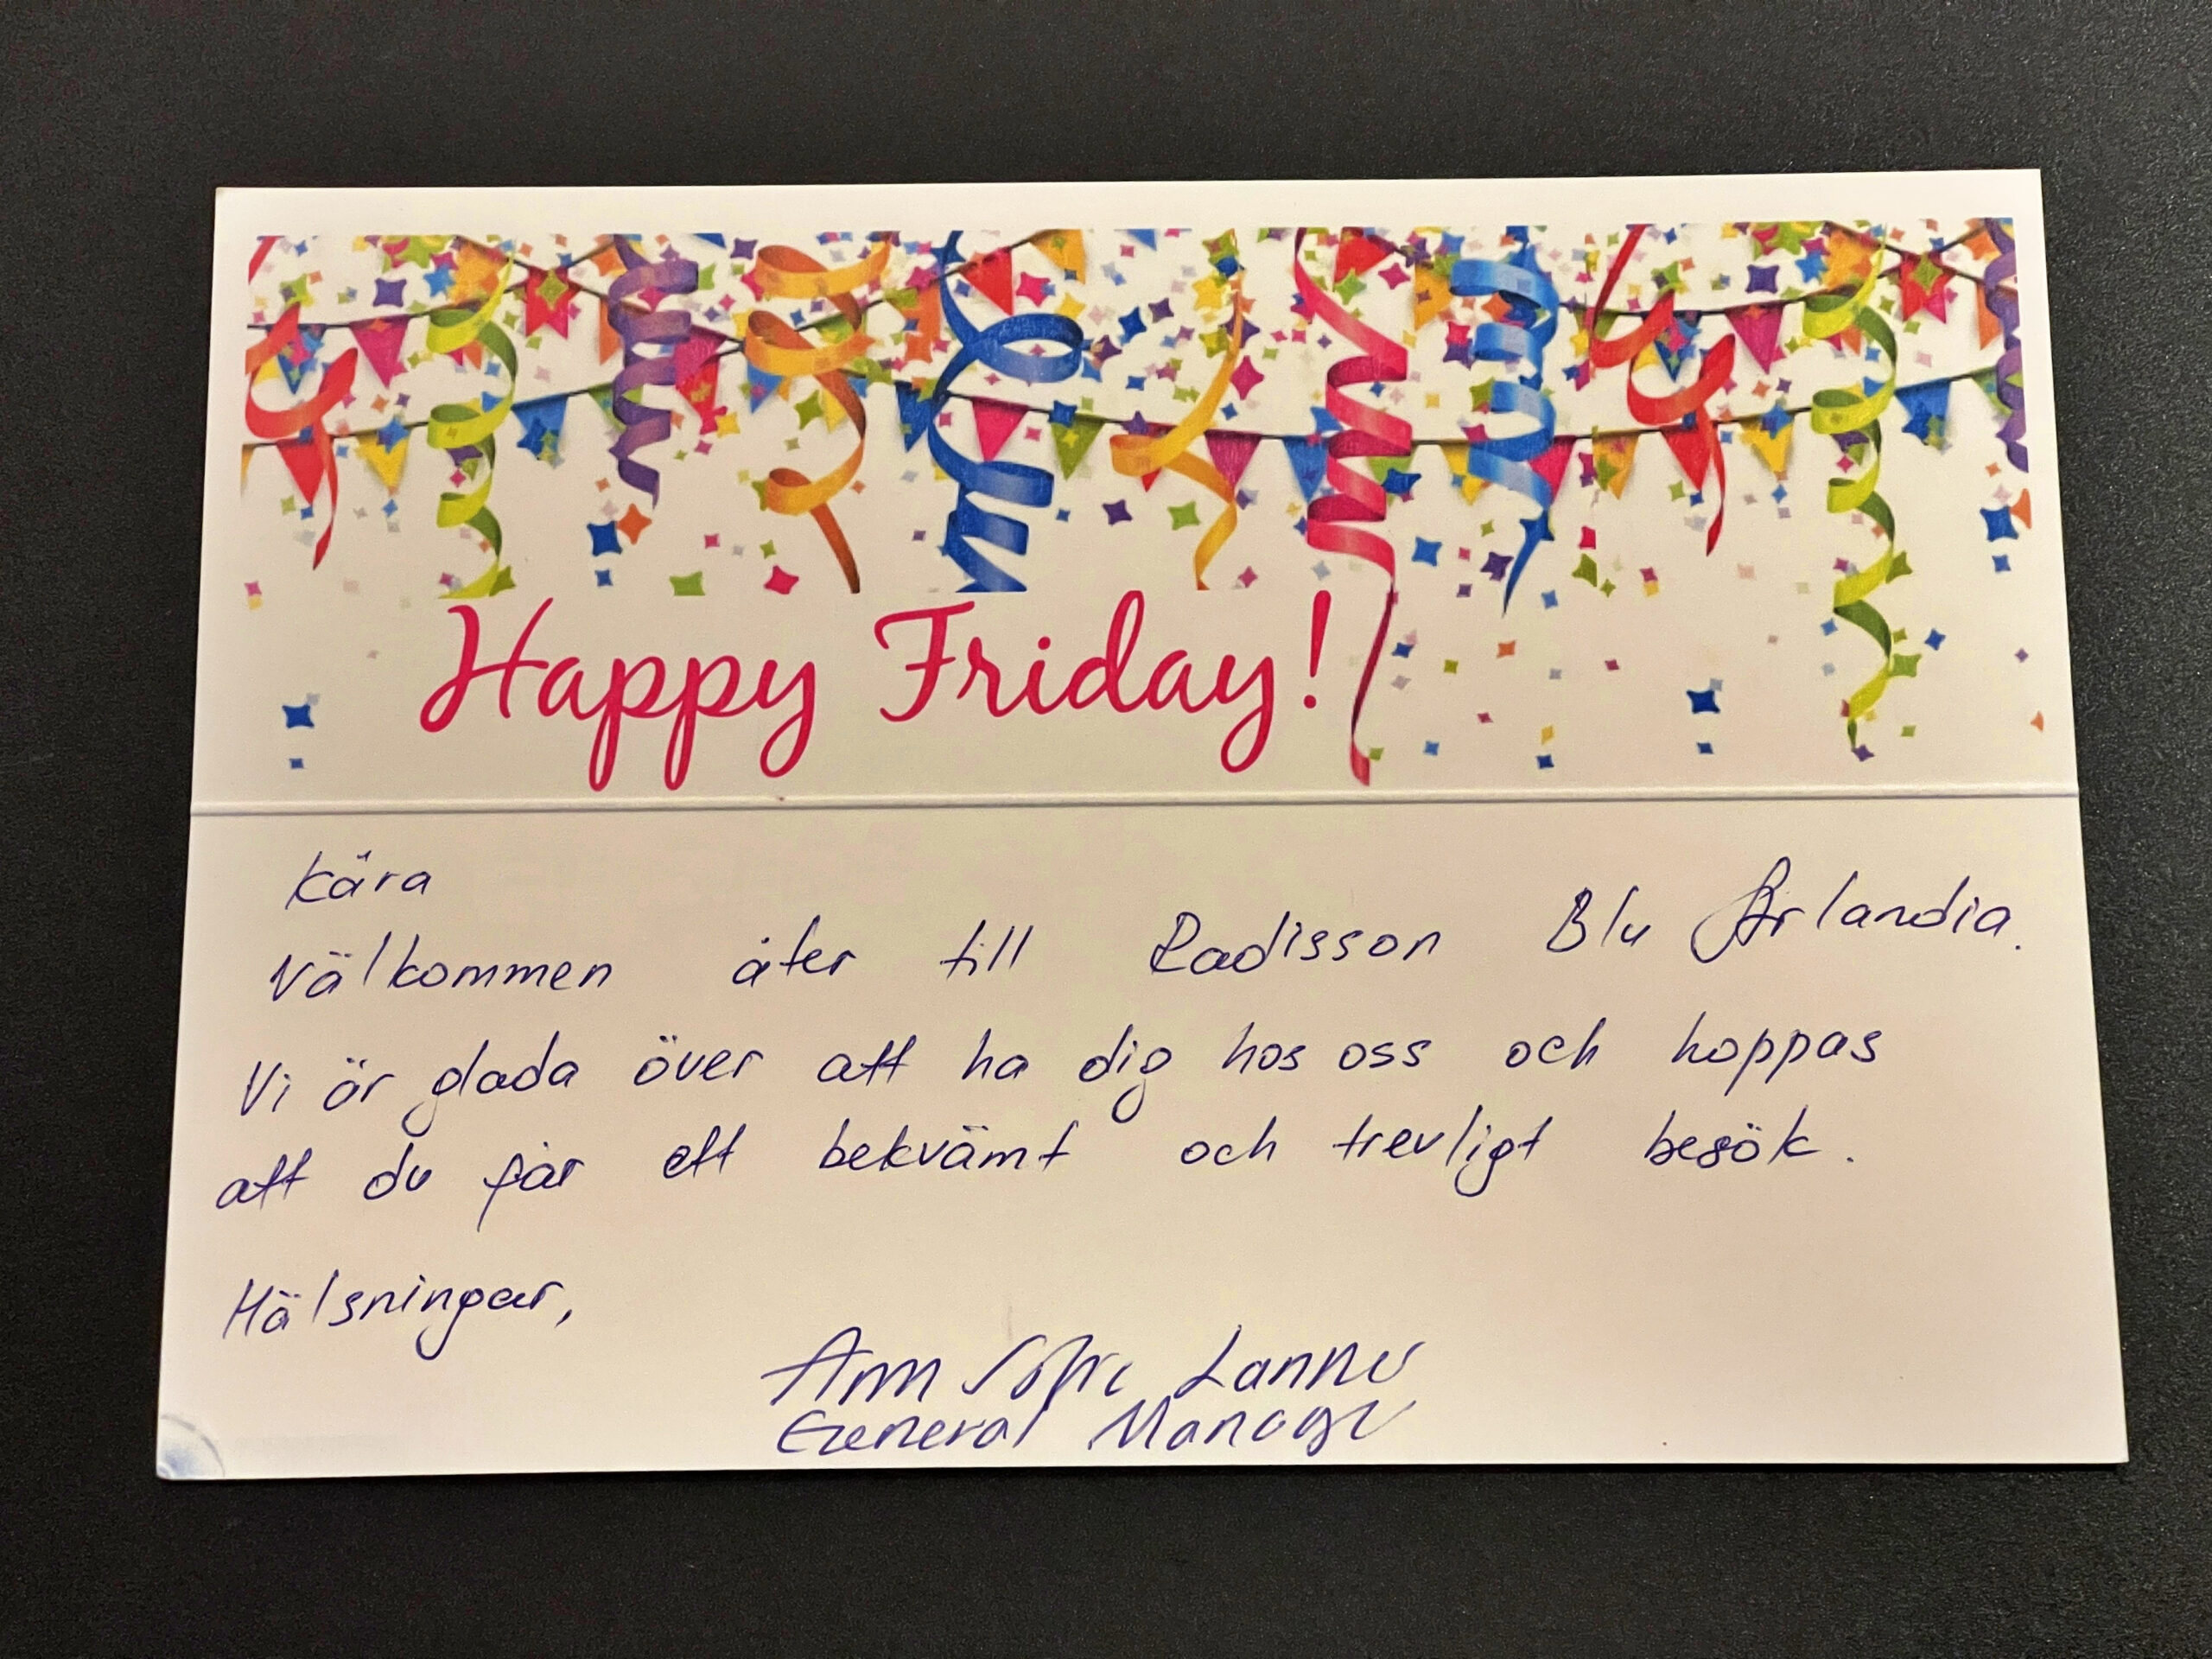 Happy Friday!
Kära
Välkommen åter till Radisson Blu Arlandia.
Vi är glada över att ha dig hos oss och hoppas
att du får ett bekvämt och trevligt besök.
Hälsningar,
Ann Sofie Lanne
General Manager